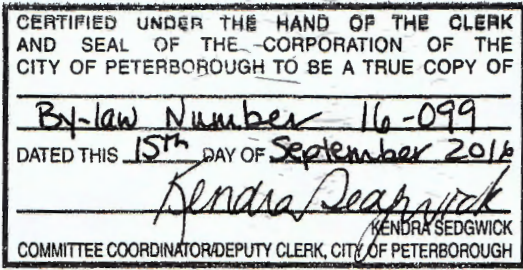 CERTIFIED UNDER THE HAND OF THE CLERK
AND SEAL OF THE CORPORATION OF THE
CITY OF PETERBOROUGH TO BE A TRUE COPY OF
By-law Number 16-099
DATED THIS 15th DAY OF September 2016
Kendra Sedgwick
KENDRA SEDGWICK
COMMITTEE COORDINATOR/DEPUTY CLERK, CITY OF PETERBOROUGH